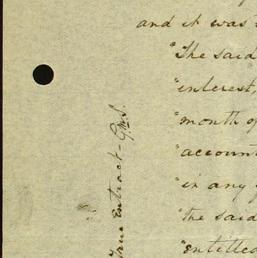 and it was
"The said
"interest,
"month of
"account
"in any
"the said
"entitled
True Extract - G.M.S.